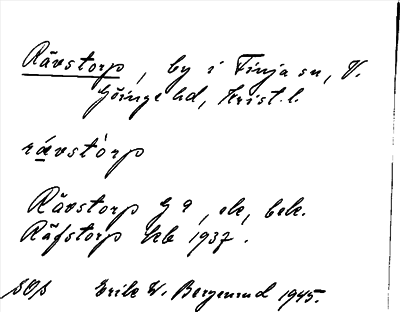 Rävstorp, by i Finja sn, V.
Göinge hd, Krist. l.
rävstòrp
Rävstorp G a, ek, bek.
Räfstorp kb 1937.
SOs Erik W. Bergenrud 1945.